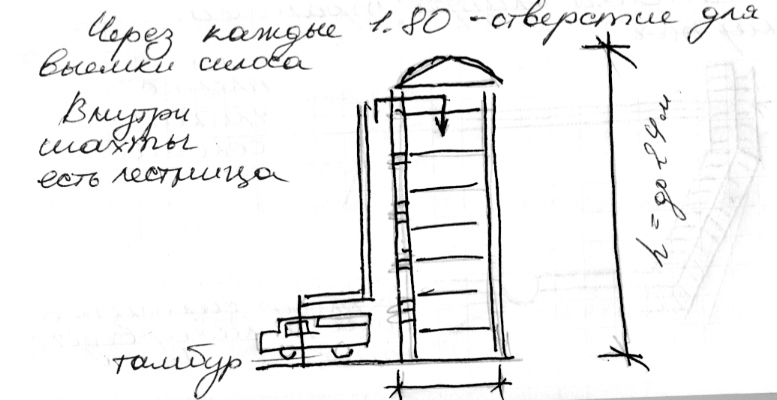 Через каждые 1.80 - отверстие для
выемки силоса
Внутри
шахты
есть лестница
h = до 24 м
тамбур